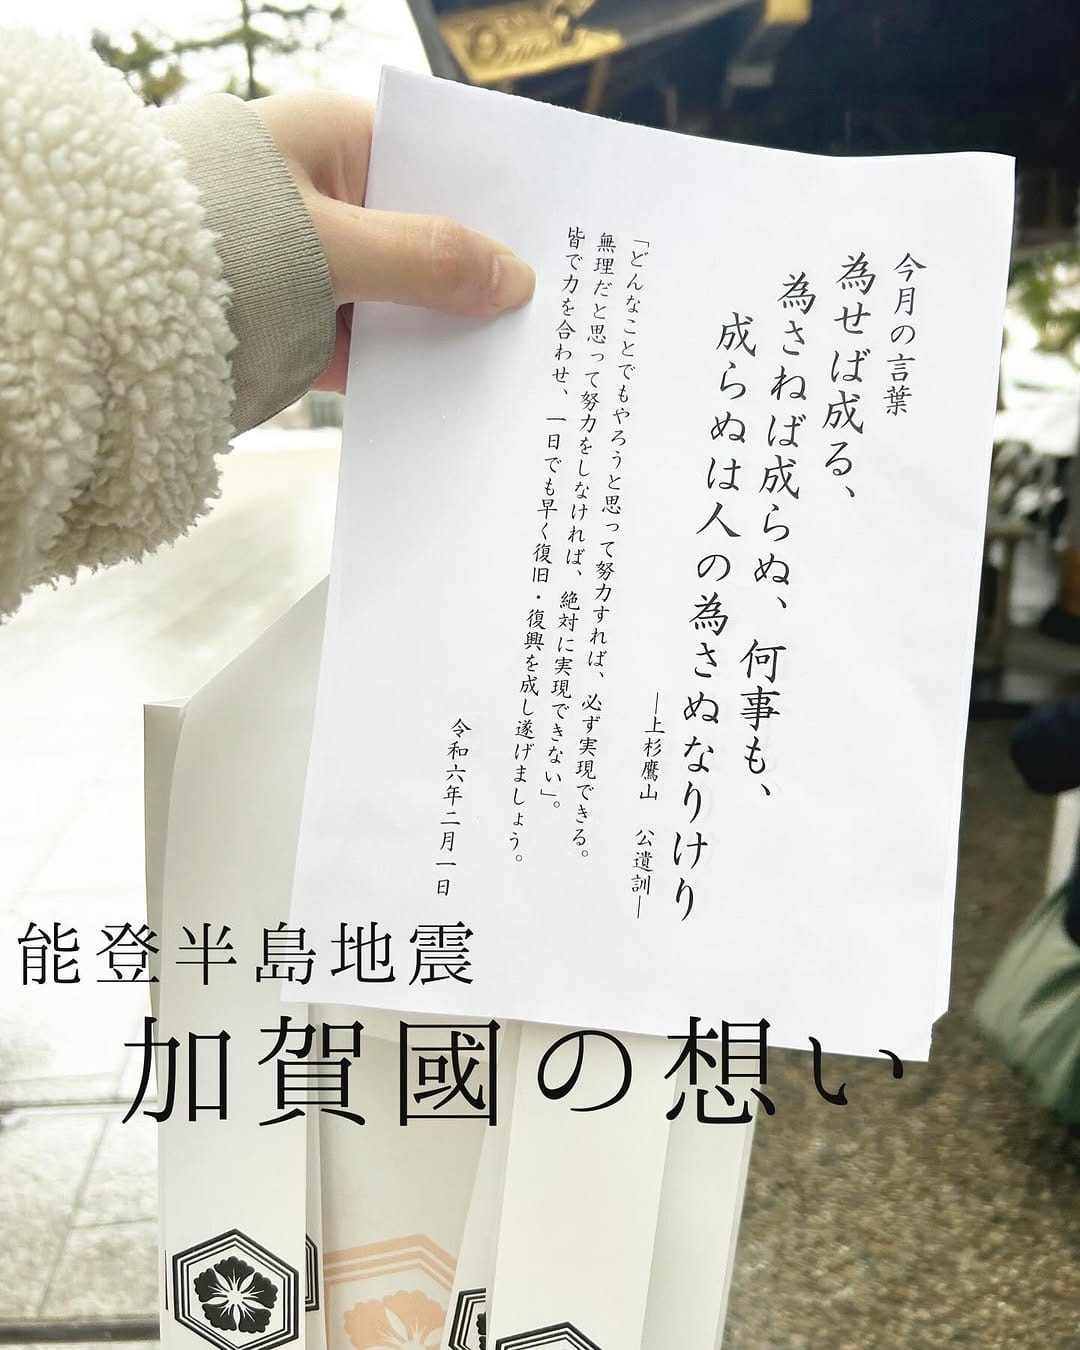 今月の言葉
為せば成る、
為さねば成らぬ、何事も、
成らぬは人の為さぬなりけり
―上杉鷹山　公遺訓―
「どんなことでもやろうと思って努力すれば、必ず実現できる。
無理だと思って努力をしなければ、絶対に実現できない」。
皆で力を合わせ、一日でも早く復旧・復興を成し遂げましょう。
令和六年二月一日
能登半島地震
加賀國の想い